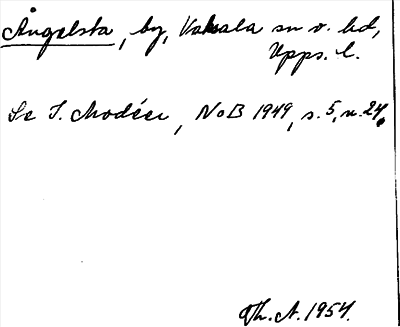 Ångelsta, by, Vaksala sn o. hd,
Upps. l.
Se I. Modéer, NoB 1949, s. 5, n. 24.
Th. A. 1954.